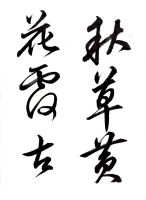 秋草黄
花霞古